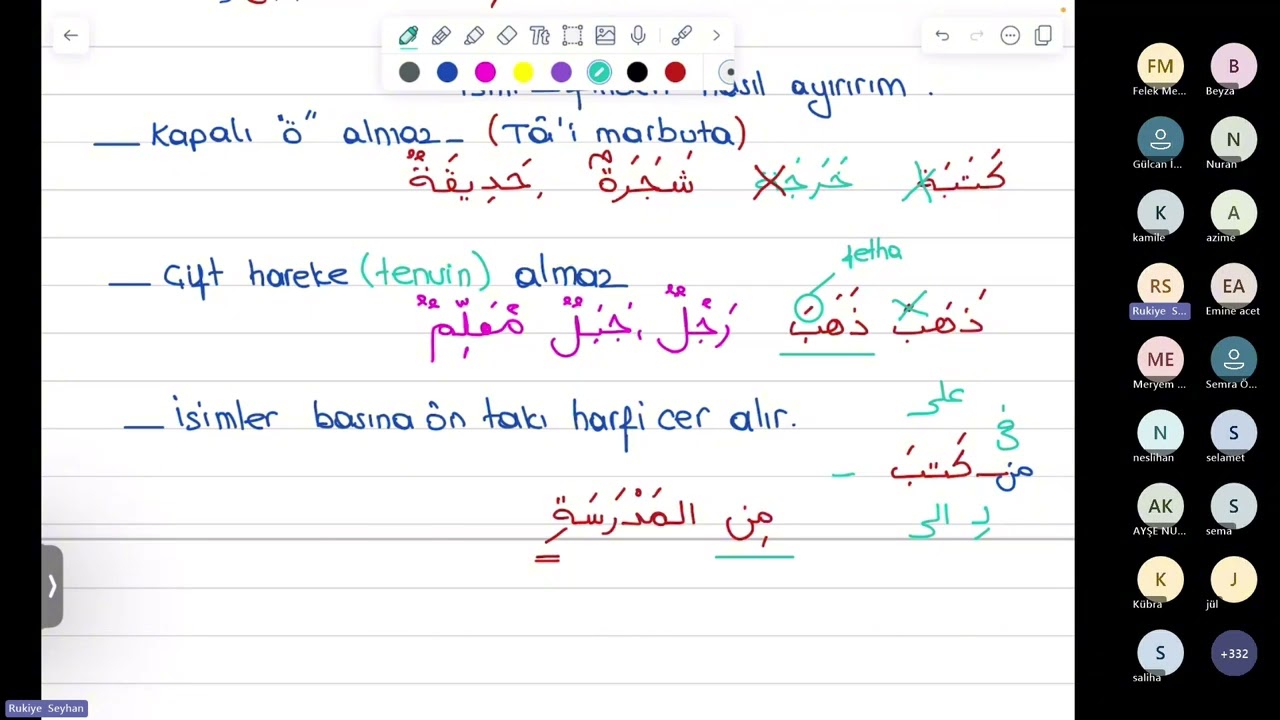 ismi fiilden nasıl ayırırım .
— Kapalı "ö" almaz — (Tâ'i marbuta)
كَتَبَة خَرَجَة شَجَرَةٌ , حَدِيقَةٌ
fetha
— Çift hareke (tenvin) almaz
ذَهَب ذَهَبَ رَجُلٌ , جَبَلٌ مُعَلِّمٌ
على
— isimler basına ön takı harfi cer alır.
في
من كَتَبَ —
لِ الى
مِن المَدْرَسَةِ
Rukiye Seyhan
FM
Felek Me...
B
Beyza
Gülcan İ...
N
Nuran
K
kamile
A
azime
RS
Rukiye S...
EA
Emine acet
ME
Meryem ...
Semra Ö...
N
neslihan
S
selamet
AK
AYŞE NU...
S
sema
K
Kübra
J
jül
S
saliha
+332